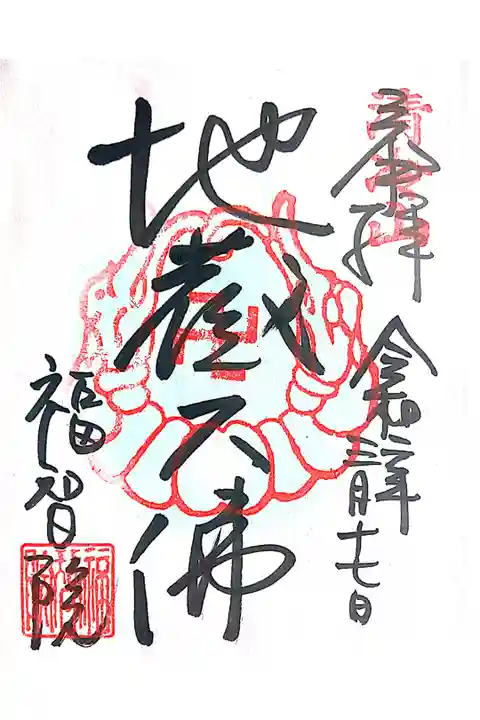 奉拝
令和六年
三月十七日
地蔵大佛
福智院